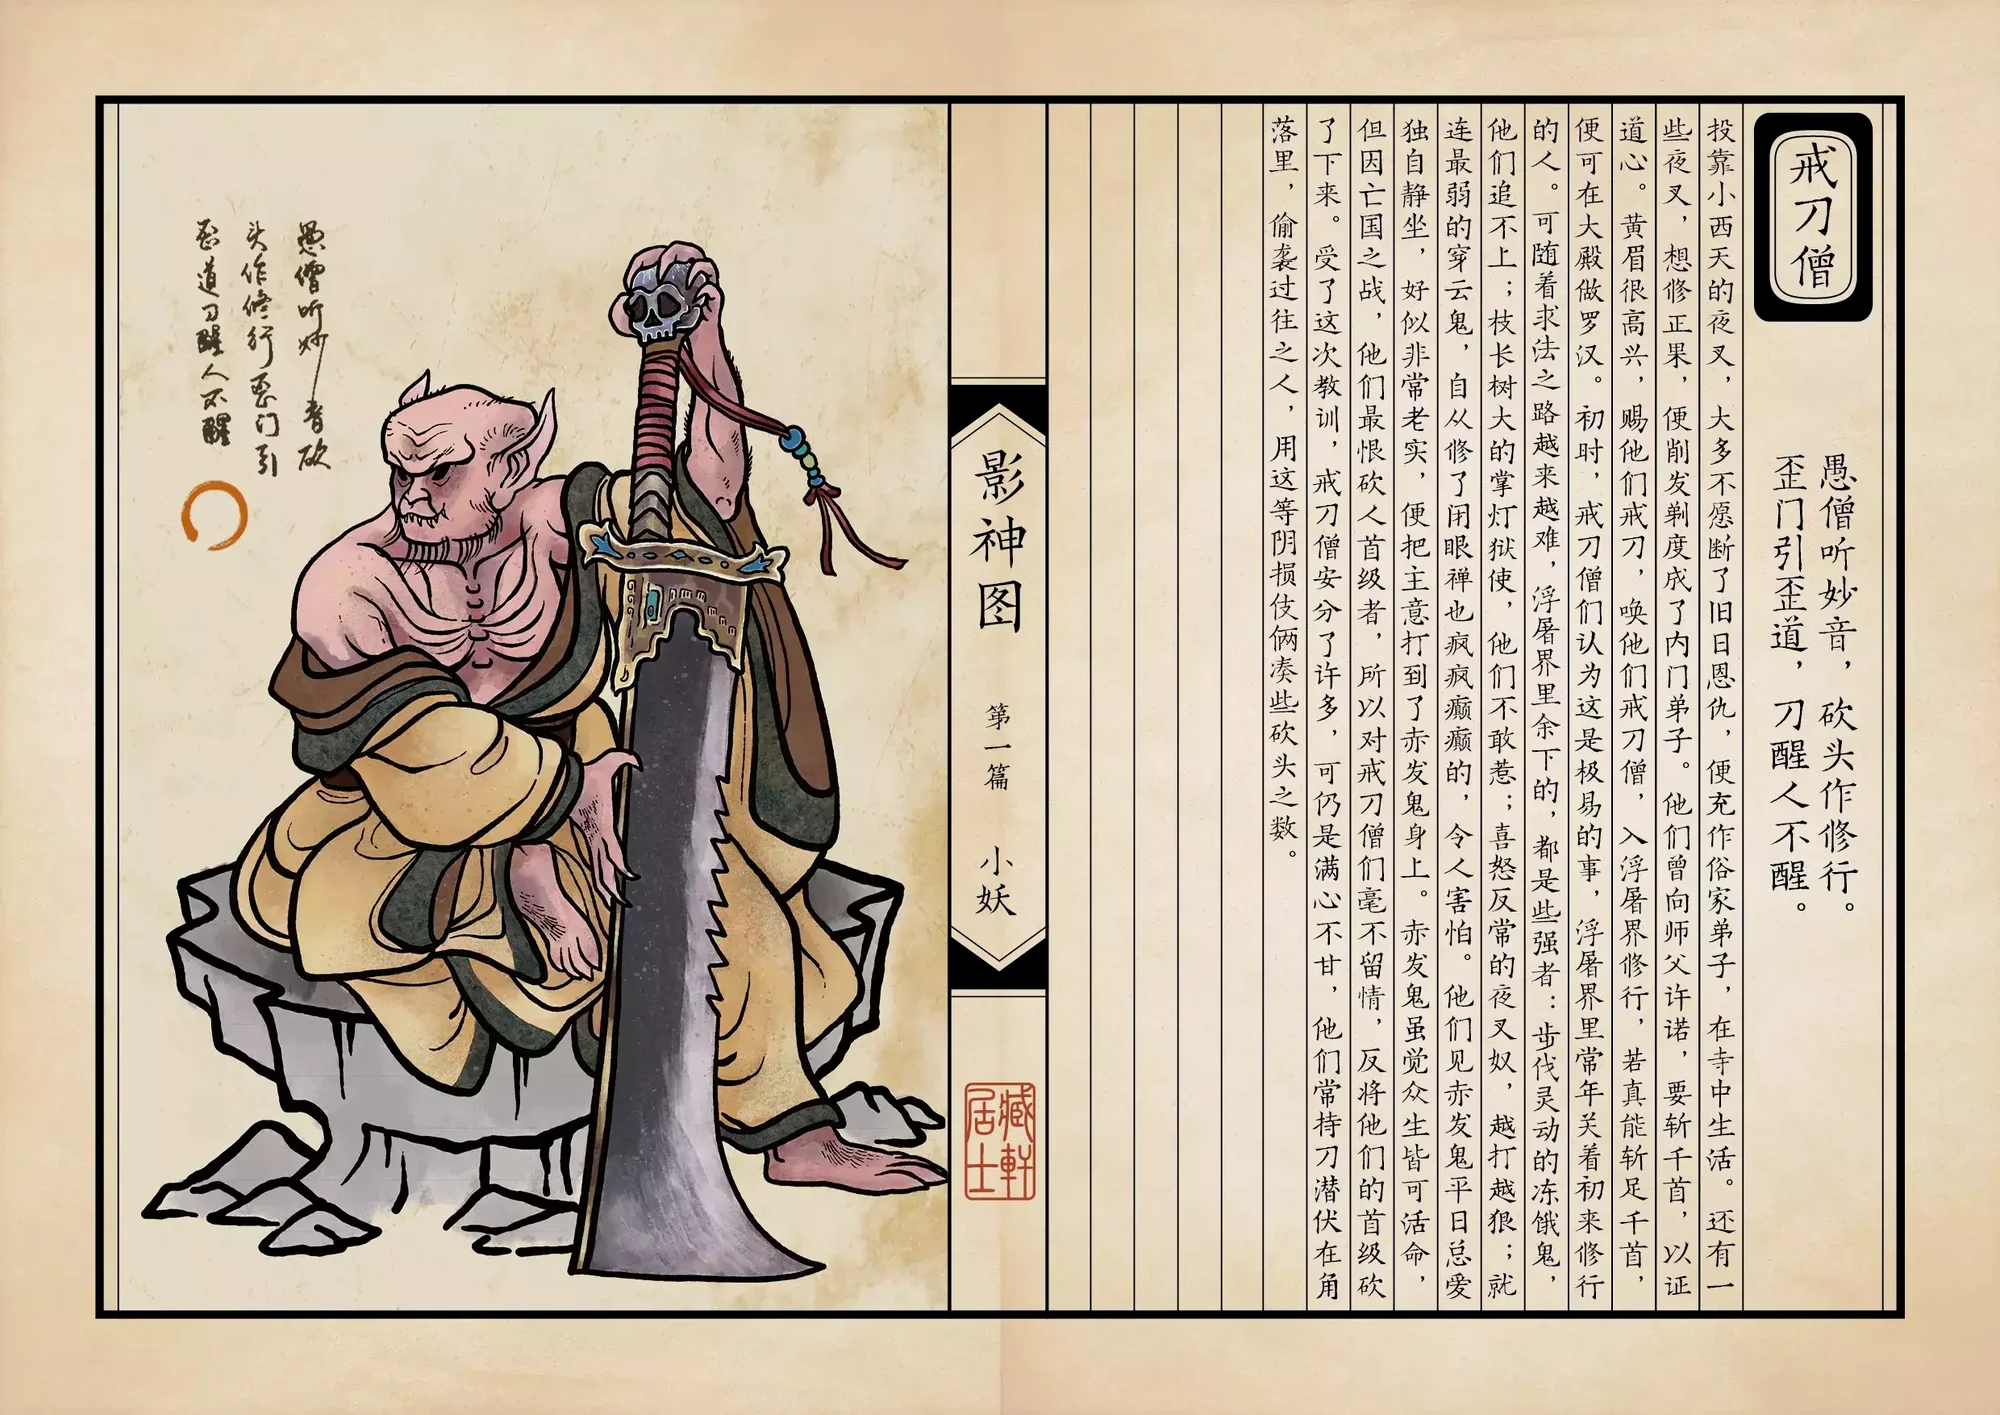 戒刀僧
愚僧听妙音，砍头作修行。
歪门引歪道，刀醒人不醒。
投靠小西天的夜叉，大多不愿断了旧日恩仇，便充作俗家弟子，在寺中生活。还有一
些夜叉，想修正果，便削发剃度成了内门弟子。他们曾向师父许诺，要斩千首，以证
道心。黄眉很高兴，赐他们戒刀，唤他们戒刀僧，入浮屠界修行，若真能斩足千首，
便可在大殿做罗汉。初时，戒刀僧们认为这是极易的事，浮屠界里常年关着初来修行
的人。可随着求法之路越来越难，浮屠界里余下的，都是些强者：步伐灵动的冻饿鬼，
他们追不上；枝长树大的掌灯狱使，他们不敢惹；喜怒反常的夜叉奴，越打越狠；就
连最弱的穿云鬼，自从修了闭眼禅也疯疯癫癫的，令人害怕。他们见赤发鬼平日总爱
独自静坐，好似非常老实，便把主意打到了赤发鬼身上。赤发鬼虽觉众生皆可活命，
但因亡国之战，他们最恨砍人首级者，所以对戒刀僧们毫不留情，反将他们的首级砍
了下来。受了这次教训，戒刀僧安分了许多，可仍是满心不甘，他们常持刀潜伏在角
落里，偷袭过往之人，用这等阴损伎俩凑些砍头之数。
影神图
第一篇
小妖
藏軒
居士
愚僧听妙音砍
头作修行歪门引
歪道刀醒人不醒